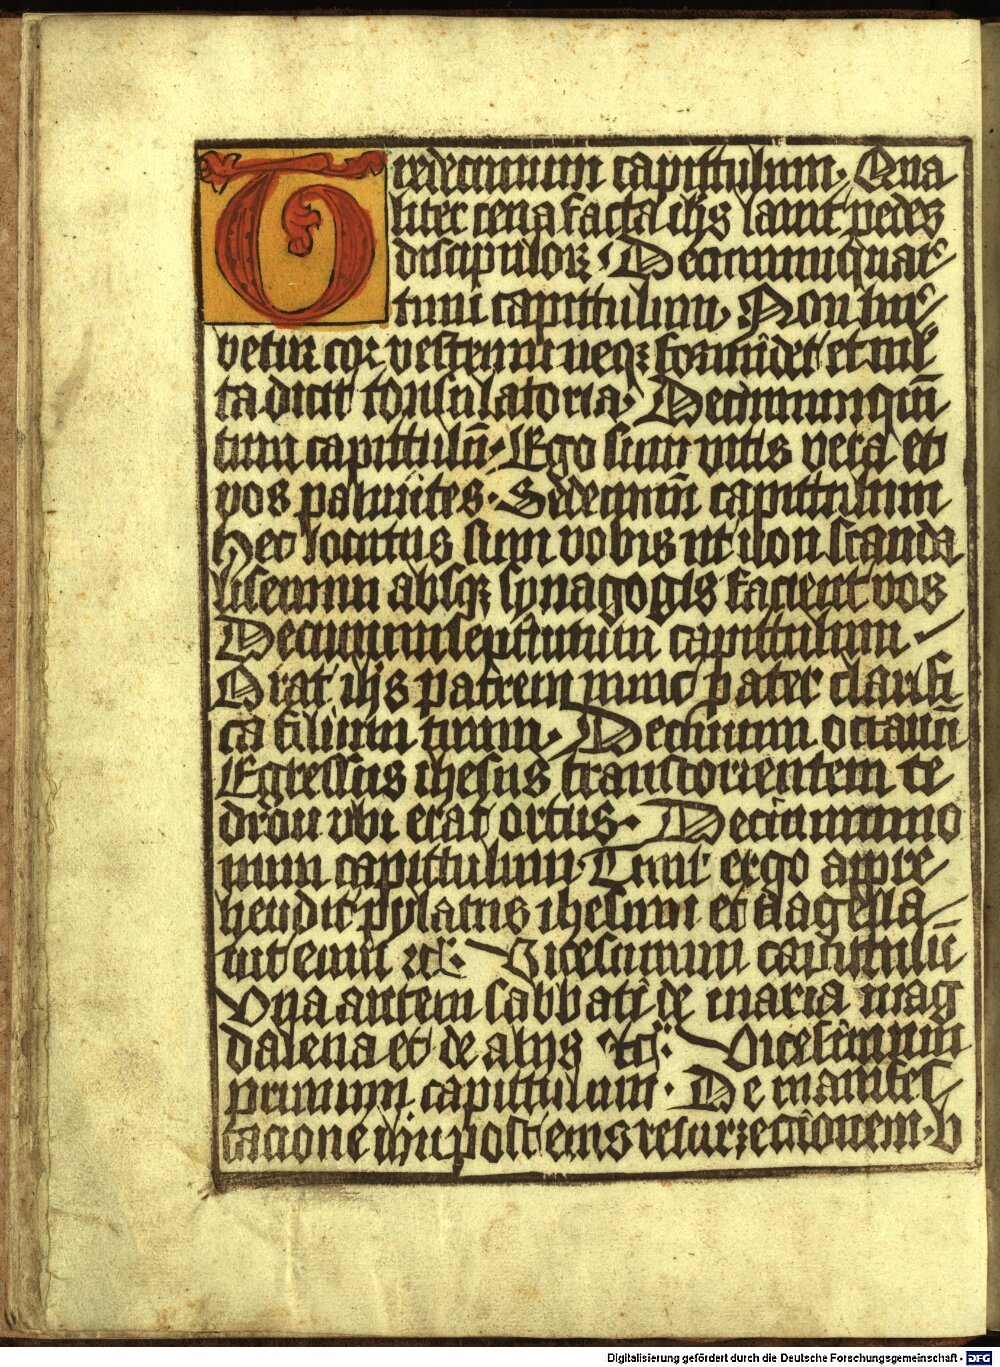 Tredecimum capittulum. Qua
liter cena facta ihs lauit pedes
discipulorꝝ. Decimumquar
tum capittulum. Non tur
betur cor vestrum neqꝫ formidet et mul
ta dicit consulatoria. Decimumquī
tum capittulū. Ego sum vitis vera et
vos palmites. Sedecimū capittulum
Hec locutus sum vobis ut non scanda
lisemini absqꝫ synagogis facient vos
Decimumseptimum capittulum.
Orat ihs patrem nunc pater clarifi
ca filium tuum. Decimum octauū
Egressus ihesus transtorrentem ce
dron vbi erat ortus. Decimumno
num capittulum. Tunc ergo appre
hendit pylatus ihesum et flagella
uit eum ꝛc. Vicesimum capittulū
Una autem sabbati de maria mag
dalena et de alijs ꝛc. Vicesimum
primum capittulum. De manifes
tacione ihū post eius resurrectionem. V
Digitalisierung gefördert durch die Deutsche Forschungsgemeinschaft - DFG